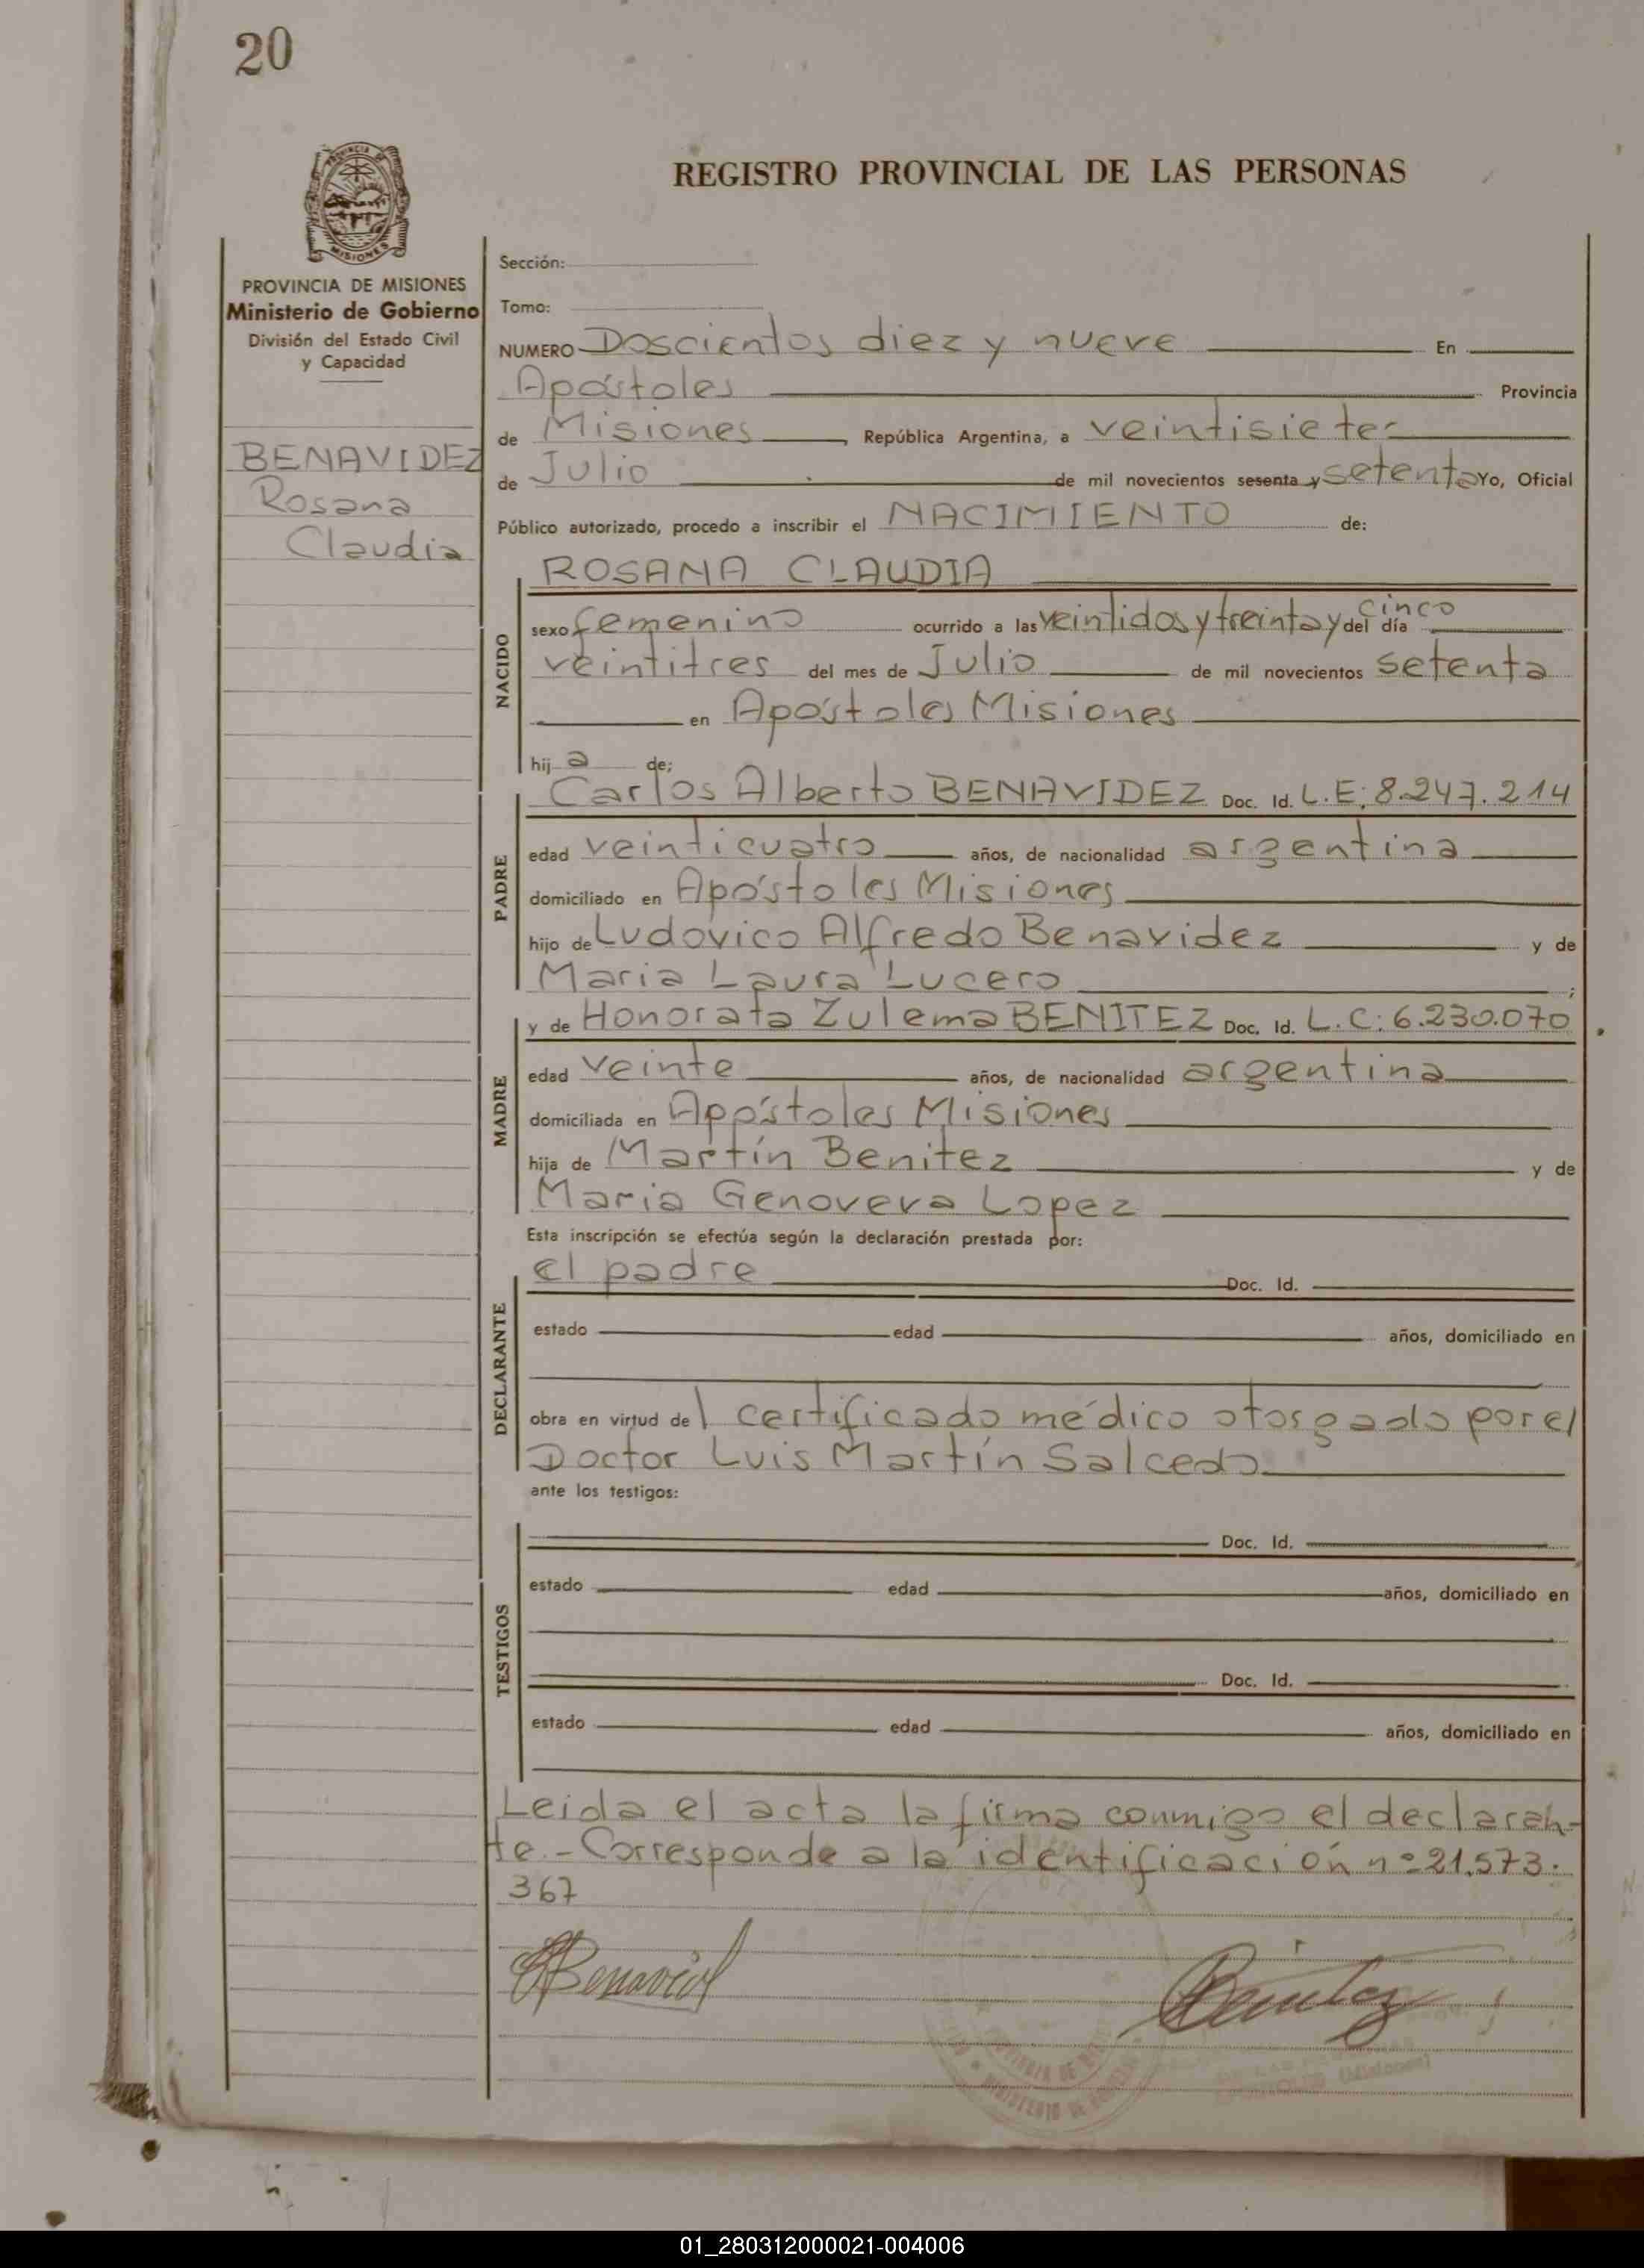 20
REGISTRO PROVINCIAL DE LAS PERSONAS
PROVINCIA DE MISIONES
Ministerio de Gobierno
División del Estado Civil
y Capacidad
BENAVIDEZ
Rosana
Claudia
Sección:
Tomo:
NUMERO Doscientos diez y nueve En
Apóstoles Provincia
de Misiones, República Argentina, a veintisiete
de Julio de mil novecientos sesenta y setenta Yo, Oficial
Público autorizado, procedo a inscribir el NACIMIENTO de:
NACIDO
ROSANA CLAUDIA
sexo femenino ocurrido a las veintidos y treinta y cinco del día
veintitres del mes de Julio de mil novecientos setenta
en Apóstoles Misiones
hij a de;
PADRE
Carlos Alberto BENAVIDEZ Doc. Id. L.E: 8.247.214
edad veinticuatro años, de nacionalidad argentina
domiciliado en Apóstoles Misiones
hijo de Ludovico Alfredo Benavidez y de
Maria Laura Lucero ;
MADRE
y de Honorata Zulema BENITEZ Doc. Id. L.C: 6.230.070
edad veinte años, de nacionalidad argentina
domiciliada en Apóstoles Misiones
hija de Martín Benitez y de
Maria Genoveva Lopez
Esta inscripción se efectúa según la declaración prestada por:
DECLARANTE
el padre Doc. Id.
estado edad años, domiciliado en
obra en virtud de l certificado médico otorgado por el
Doctor Luis Martín Salcedo
ante los testigos:
TESTIGOS
Doc. Id.
estado edad años, domiciliado en
Doc. Id.
estado edad años, domiciliado en
Leida el acta la firma conmigo el declaran-
te.- Corresponde a la identificación nº 21.573.
367
Benavid
Benitez
01_280312000021-004006